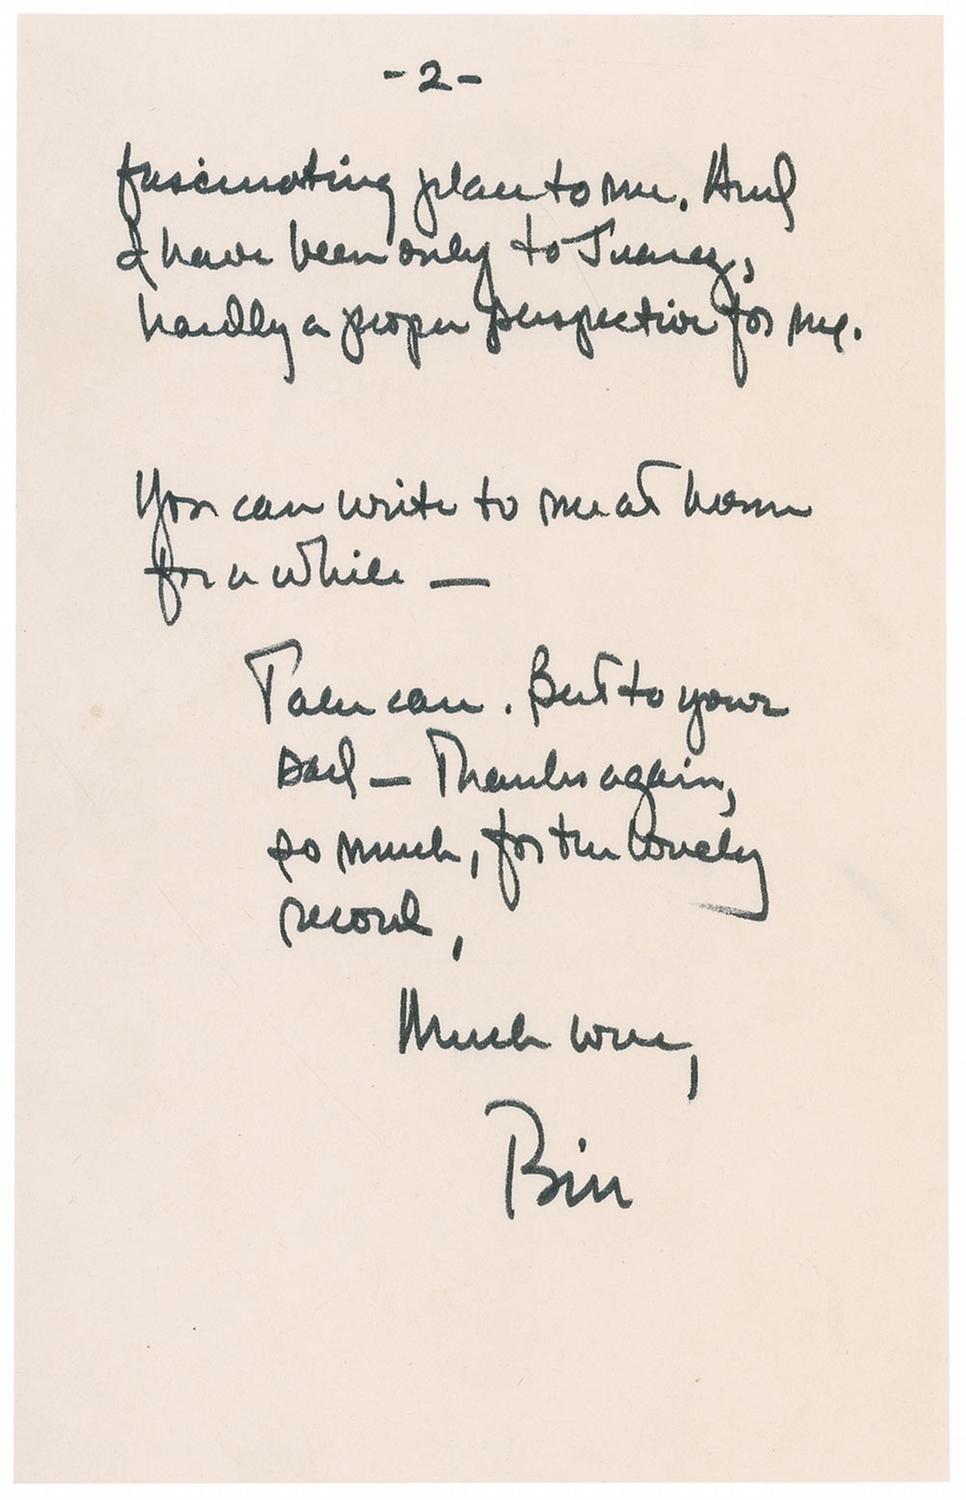 -2-
fascinating place to me. And
I have been only to Juarez,
hardly a proper perspective for me.
You can write to me at home
for a while —
Take care. Best to your
Dad — Thanks again,
so much, for the lovely
record,
Much love,
Bill